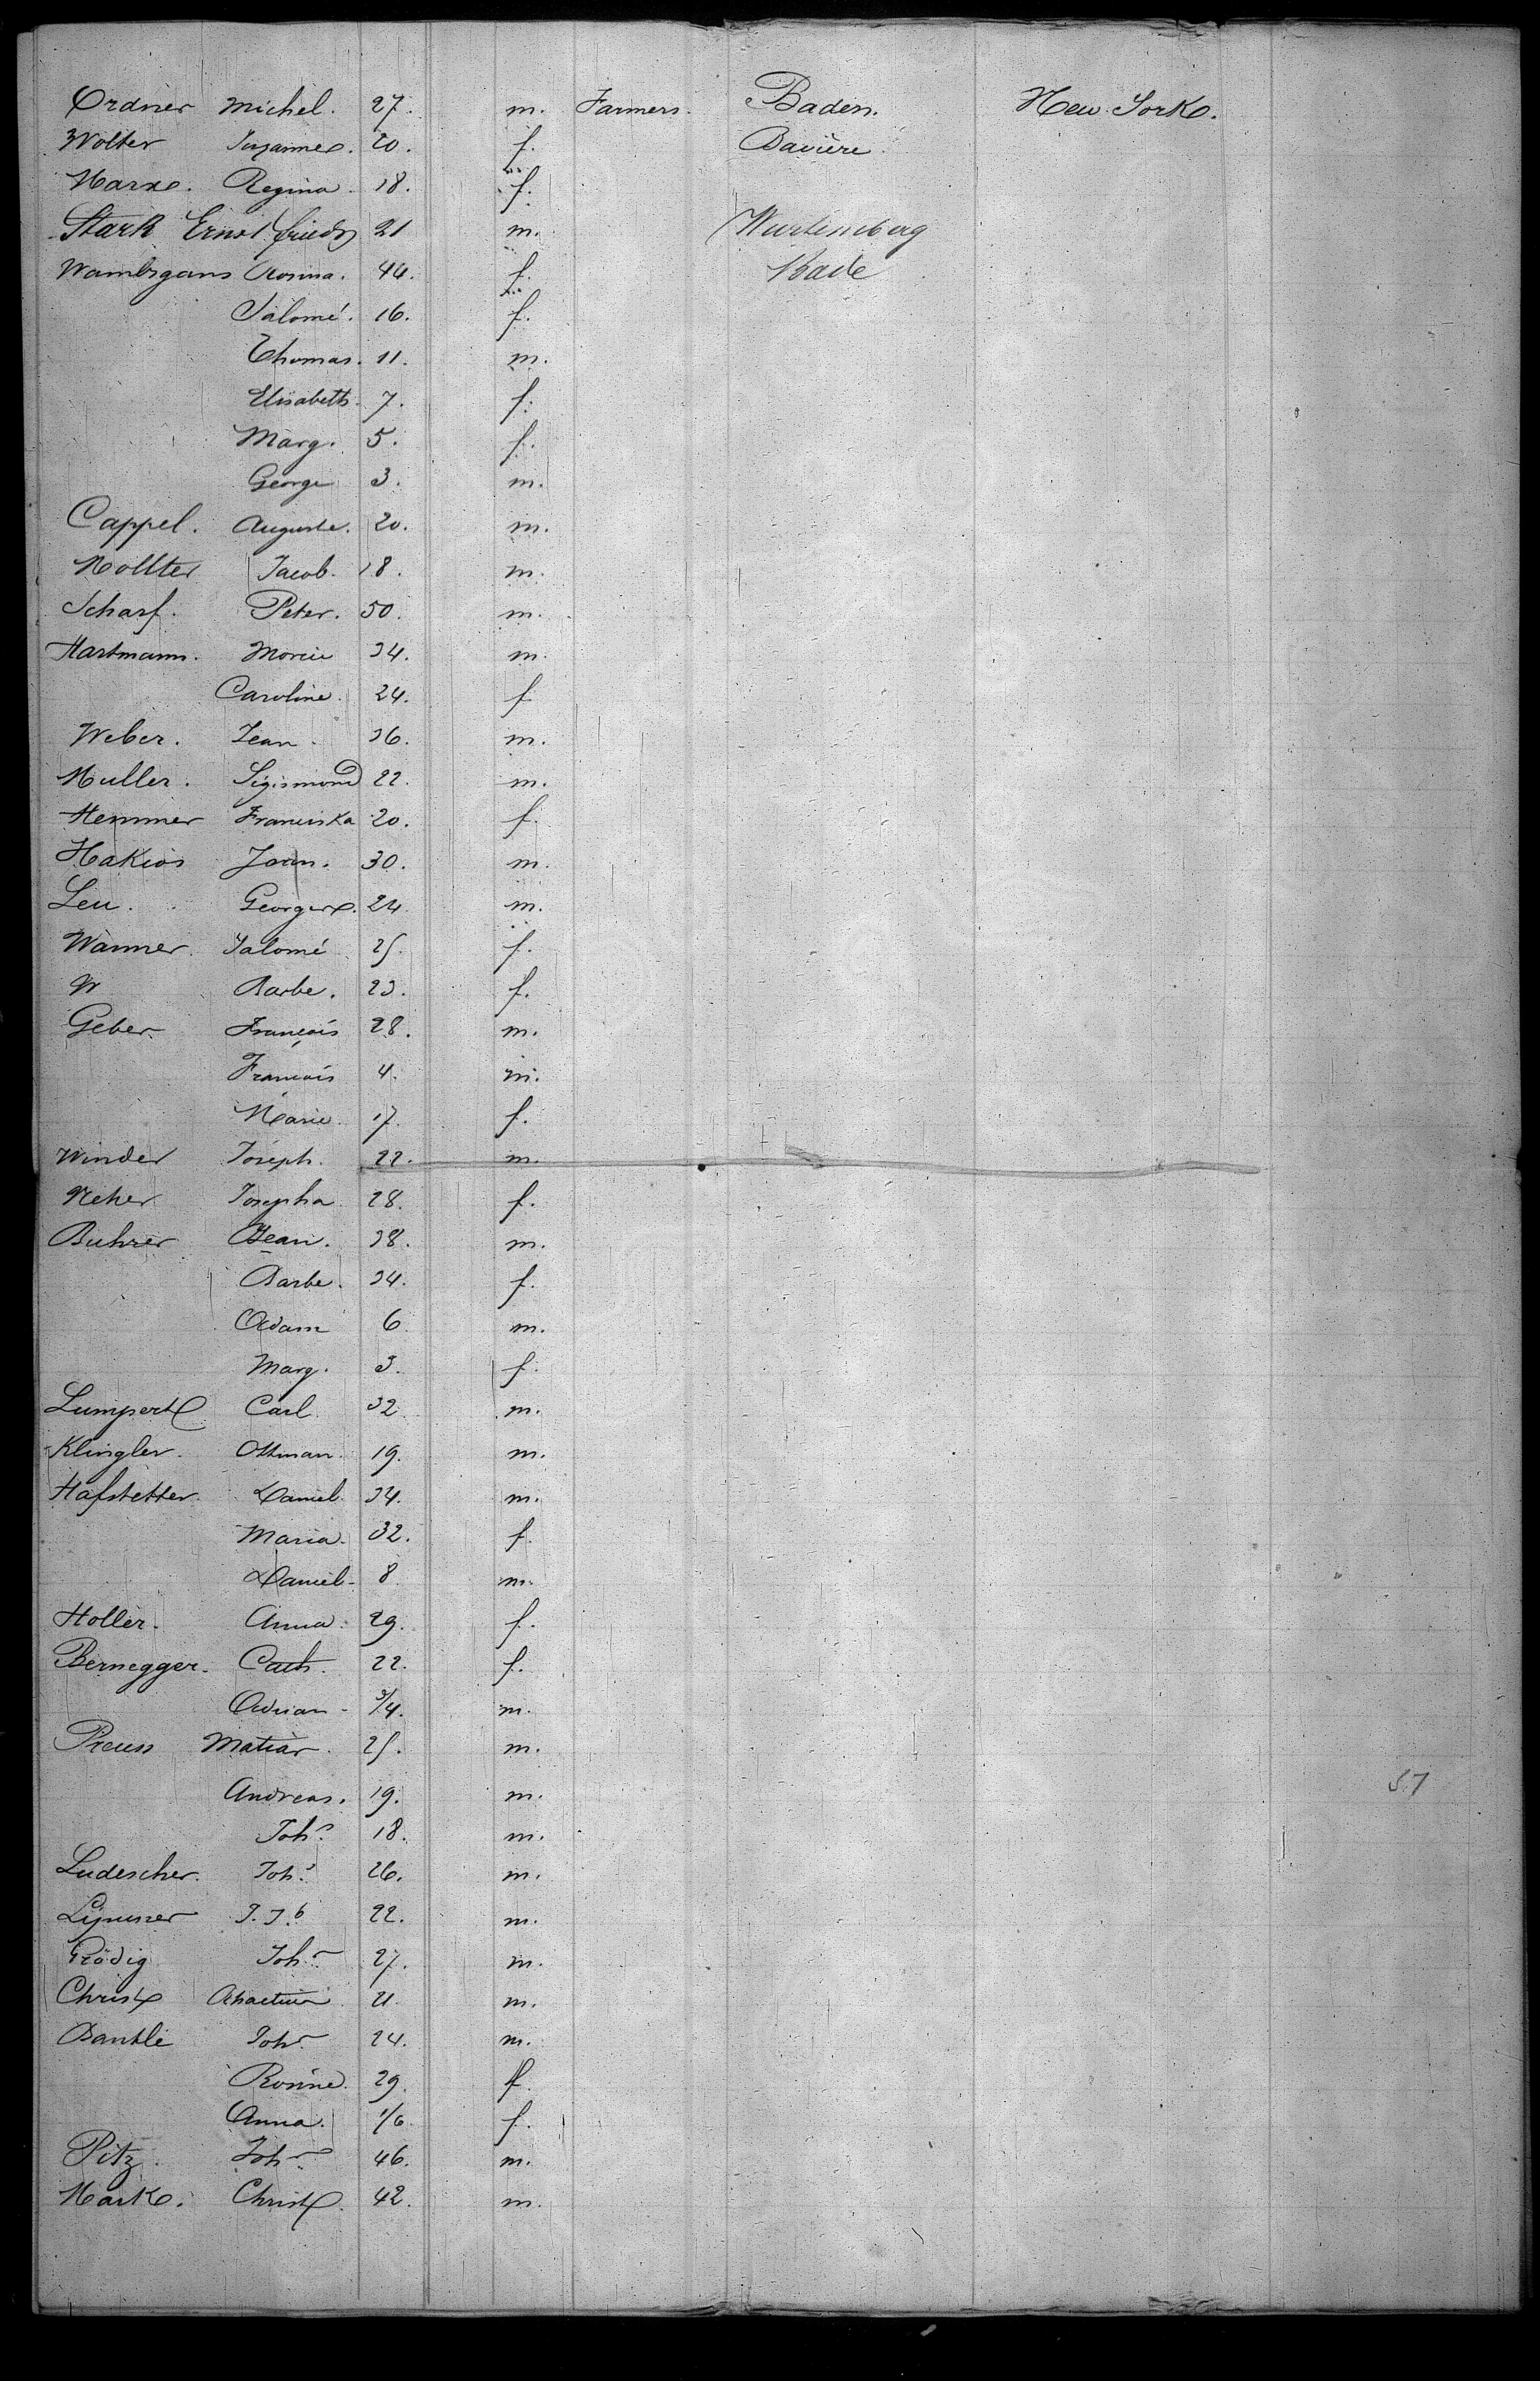 Ordner Michel. 27. m. Farmers. Baden. New York.
Wolter Suzanne. 20. f. Bavière
Marx. Regina. 18. f.
Stark Ernst friedr 21 m. Wurtemberg
Wambsgans Rosina. 44. f. Bade
Salomé. 16. f.
Thomas. 11. m.
Elisabeth. 7. f.
Marg. 5. f.
George 3. m.
Cappel. Auguste. 20. m.
Mollter Jacob. 18. m.
Scharf. Peter. 50. m.
Hartmann. 34. m.
Caroline. 24. f
Weber. Jean. 36. m.
Muller. Sigismond 22. m.
Hemmer Franciska 20. f.
Hakios Joan. 30. m.
Leu. George. 24. m.
Wanner. Salomé 25. f.
W Barbe. 23. f.
Geber François 28. m.
François 4. m.
Marie. 17. f.
Winder Joseph. 22. m.
Neher Josepha. 28. f.
Buhrer Jean. 38. m.
Barbe. 34. f.
Adam 6 m.
Marg. 3. f.
Lumpert Carl. 32 m.
Klingler. Ottmar. 19. m.
Hafstetter. Daniel. 34. m.
Maria. 32. f.
Daniel. 8 m.
Holler. Anna. 29. f.
Bernegger. Cath. 22. f.
Adrian 3/4. m.
Preuss Matias. 25. m.
Andreas. 19. m. 57
Johs. 18. m.
Ludescher. Johs. 26. m.
J. Jb 22. m.
Johs. 27. m.
Christ 21. m.
Bantle Johs. 24. m.
Rosine. 29. f.
Anna. 1/6. f.
Pitz. Johs. 46. m.
Mark. Christ. 42. m.